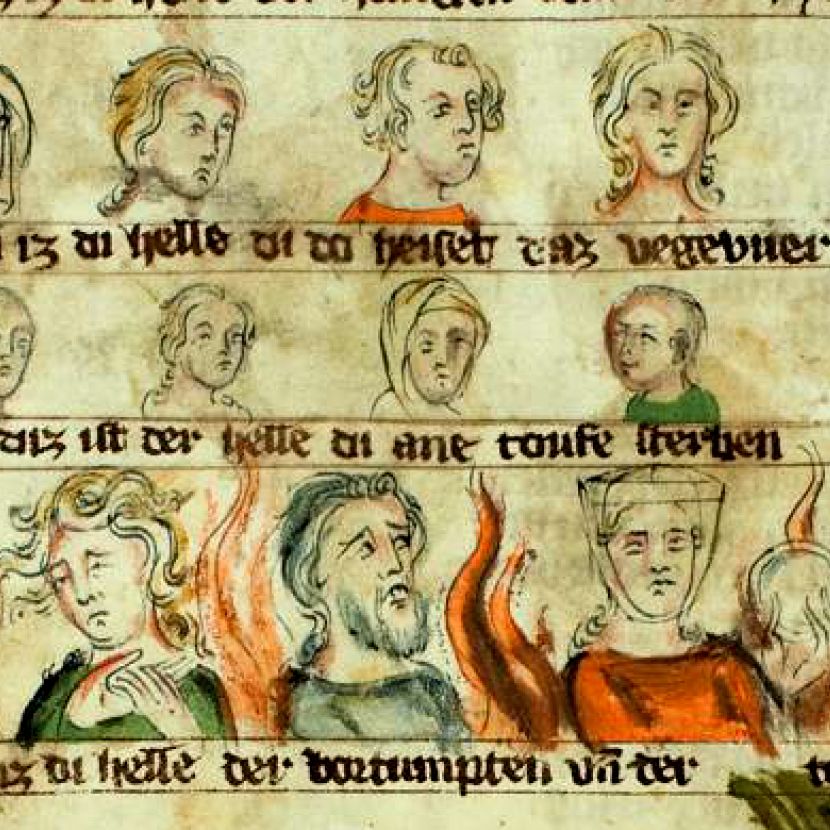 iz di helle di do heiset daz vegevuer
daz ist der helle di ane toufe sterben
di helle der vortumpten vñ der